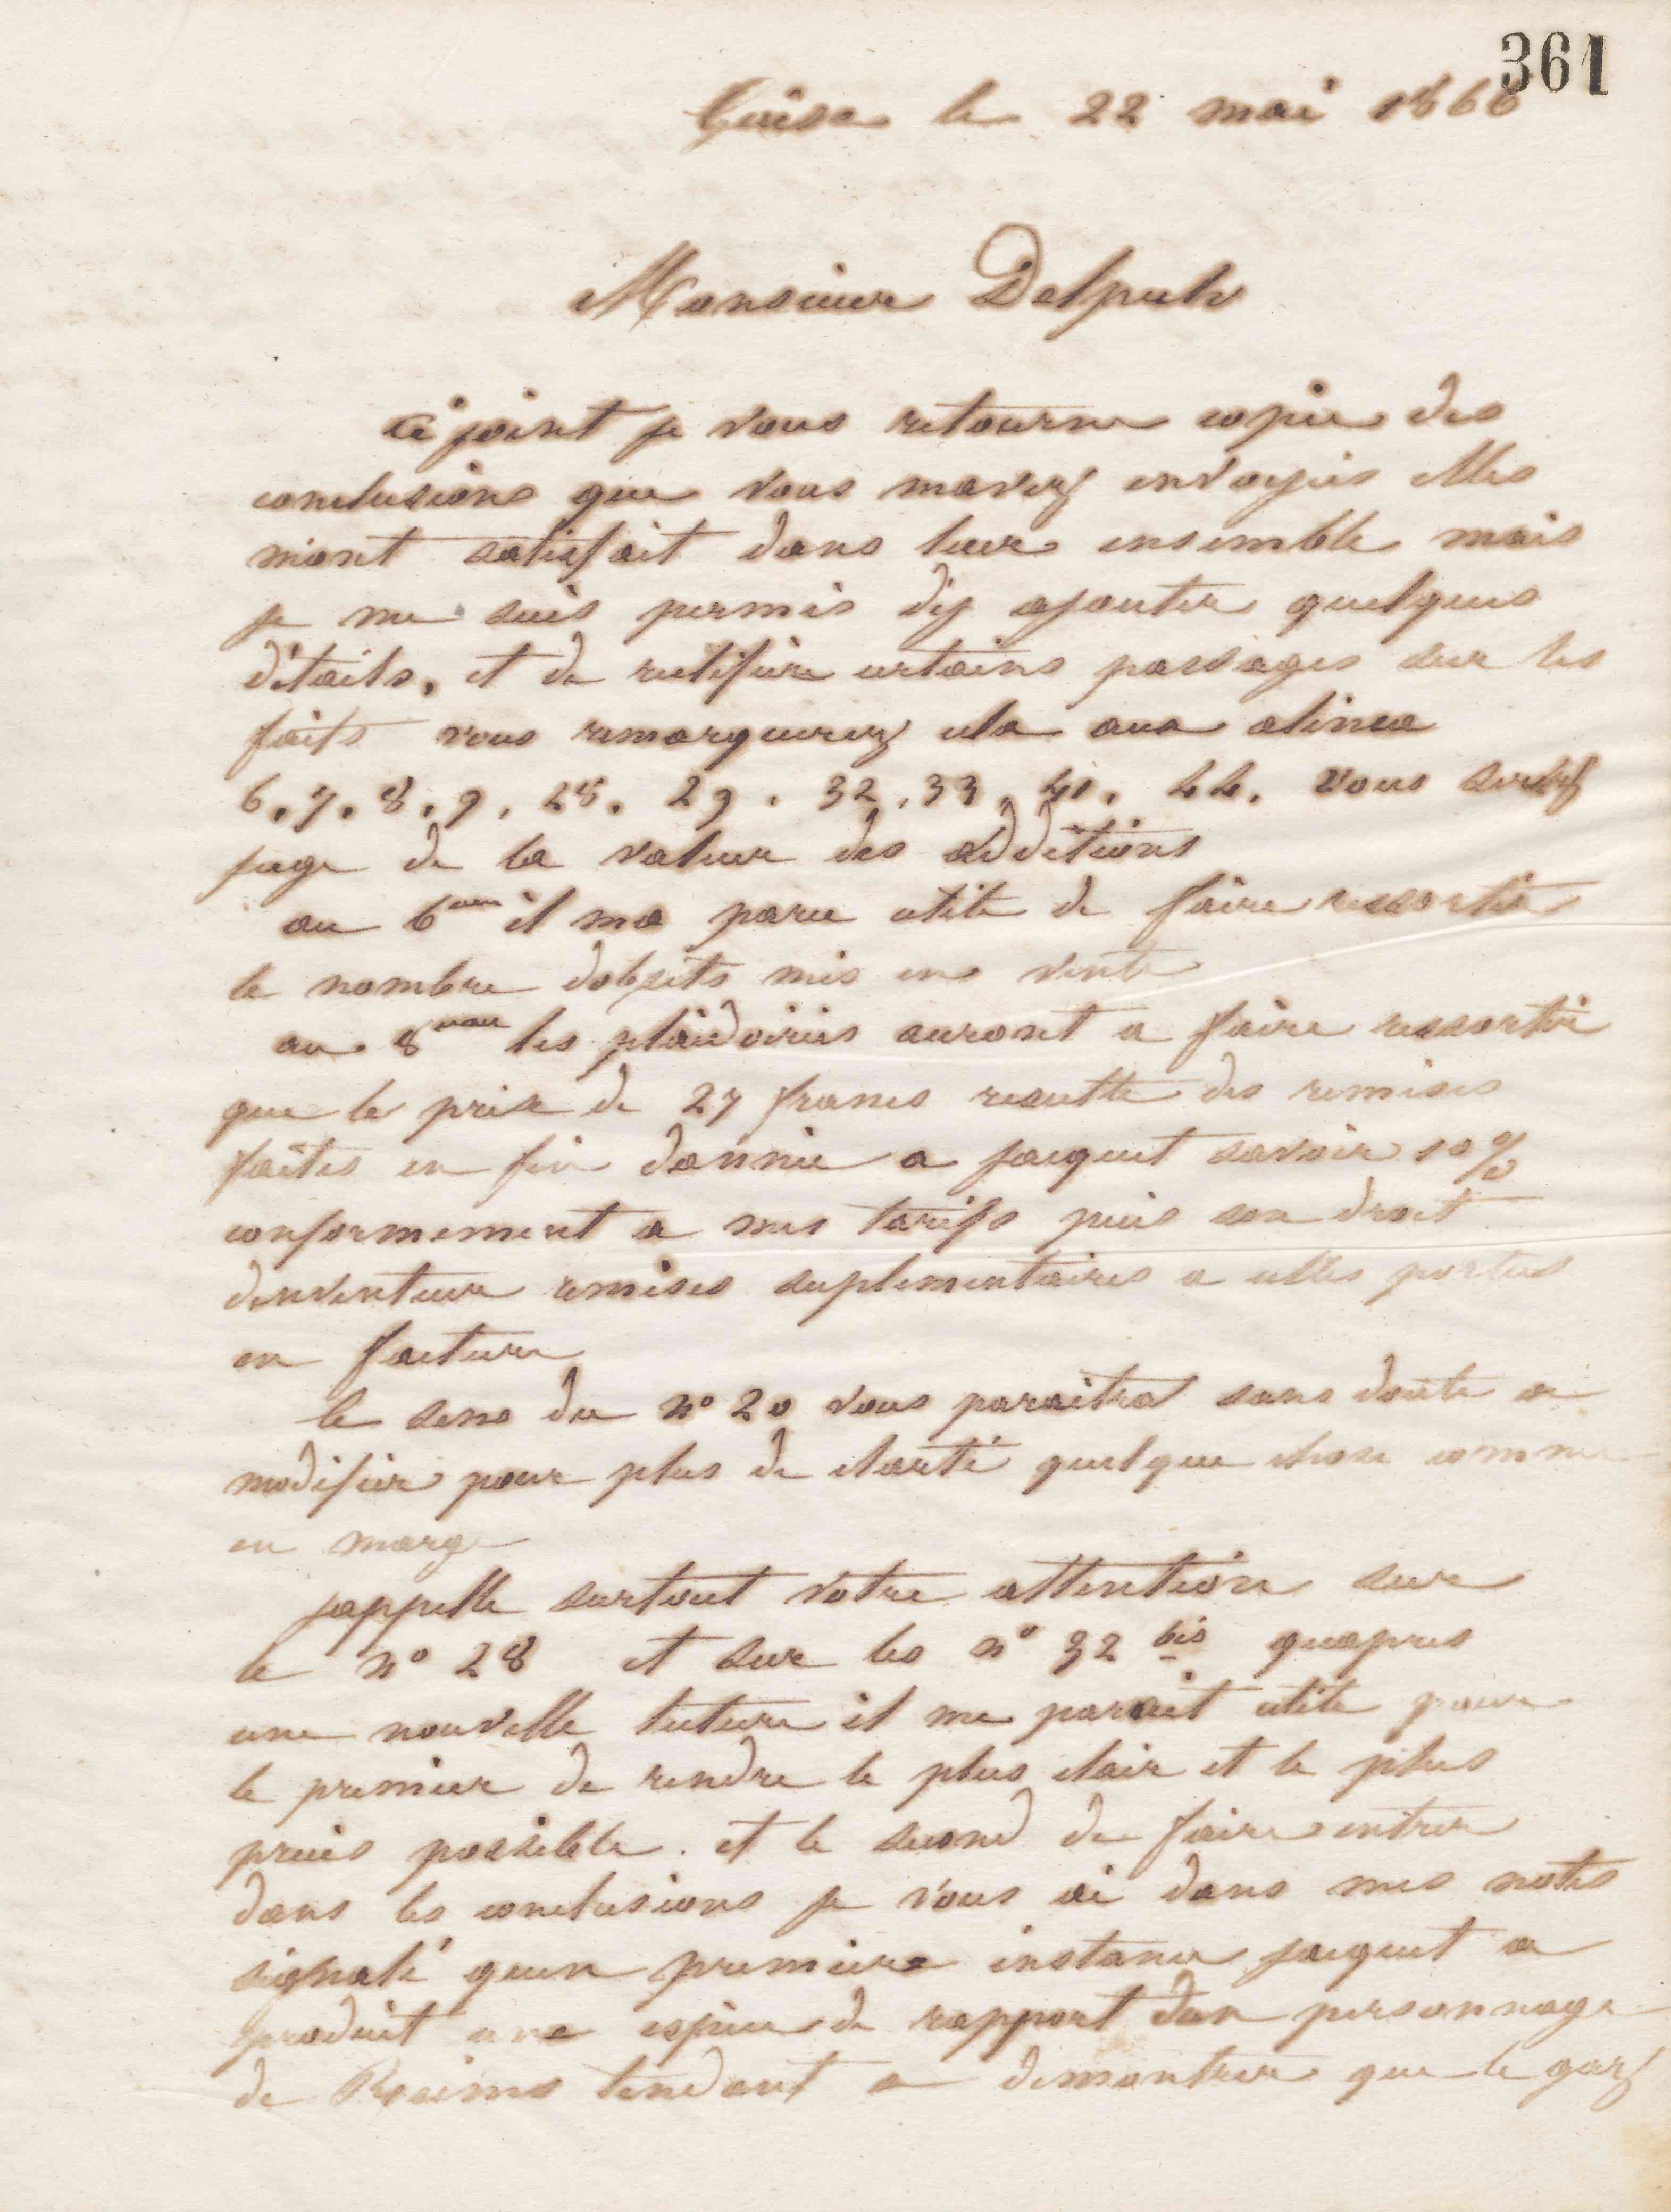 361
Guise le 22 mai 1866
Monsieur Delpech
ci joint je vous retourne copie des
conclusions que vous mavez envoyées elles
mont satisfait dans leur ensemble mais
je me suis permis d'y ajouter quelques
détails, et de rectifier certains passages sur les
faits vous remarquerez cela aux alinea
6. 7. 8. 9. 28. 29. 32. 33. 40. 44. vous serez
juge de la valeur des additions
au 6eme il ma paru utile de faire ressortir
le nombre dobjets mis en vente
au 8eme les plaidoiries auront a faire ressortir
que le prix de 27 francs resulte des remises
faites en fin dannée a jacquet savoir 10%
conformement a mes tarifs puis son droit
dinventeur remises suplementaires a celles portées
en facture
le sens du n° 20 vous paraitra sans doute a
modifier pour plus de clarté quelque chose comme
en marge
jappelle surtout votre attention sur
le n° 28 et sur les n° 32 bis quapres
une nouvelle lecture il me parait utile pour
le premier de rendre le plus clair et le plus
précis possible. et le second de faire entrer
dans les conclusions je vous ai dans mes notes
signalé quen premiere instance jacquet a
produit une espèce de rapport dun personnage
de Reims tendant a demontrer que le gaz